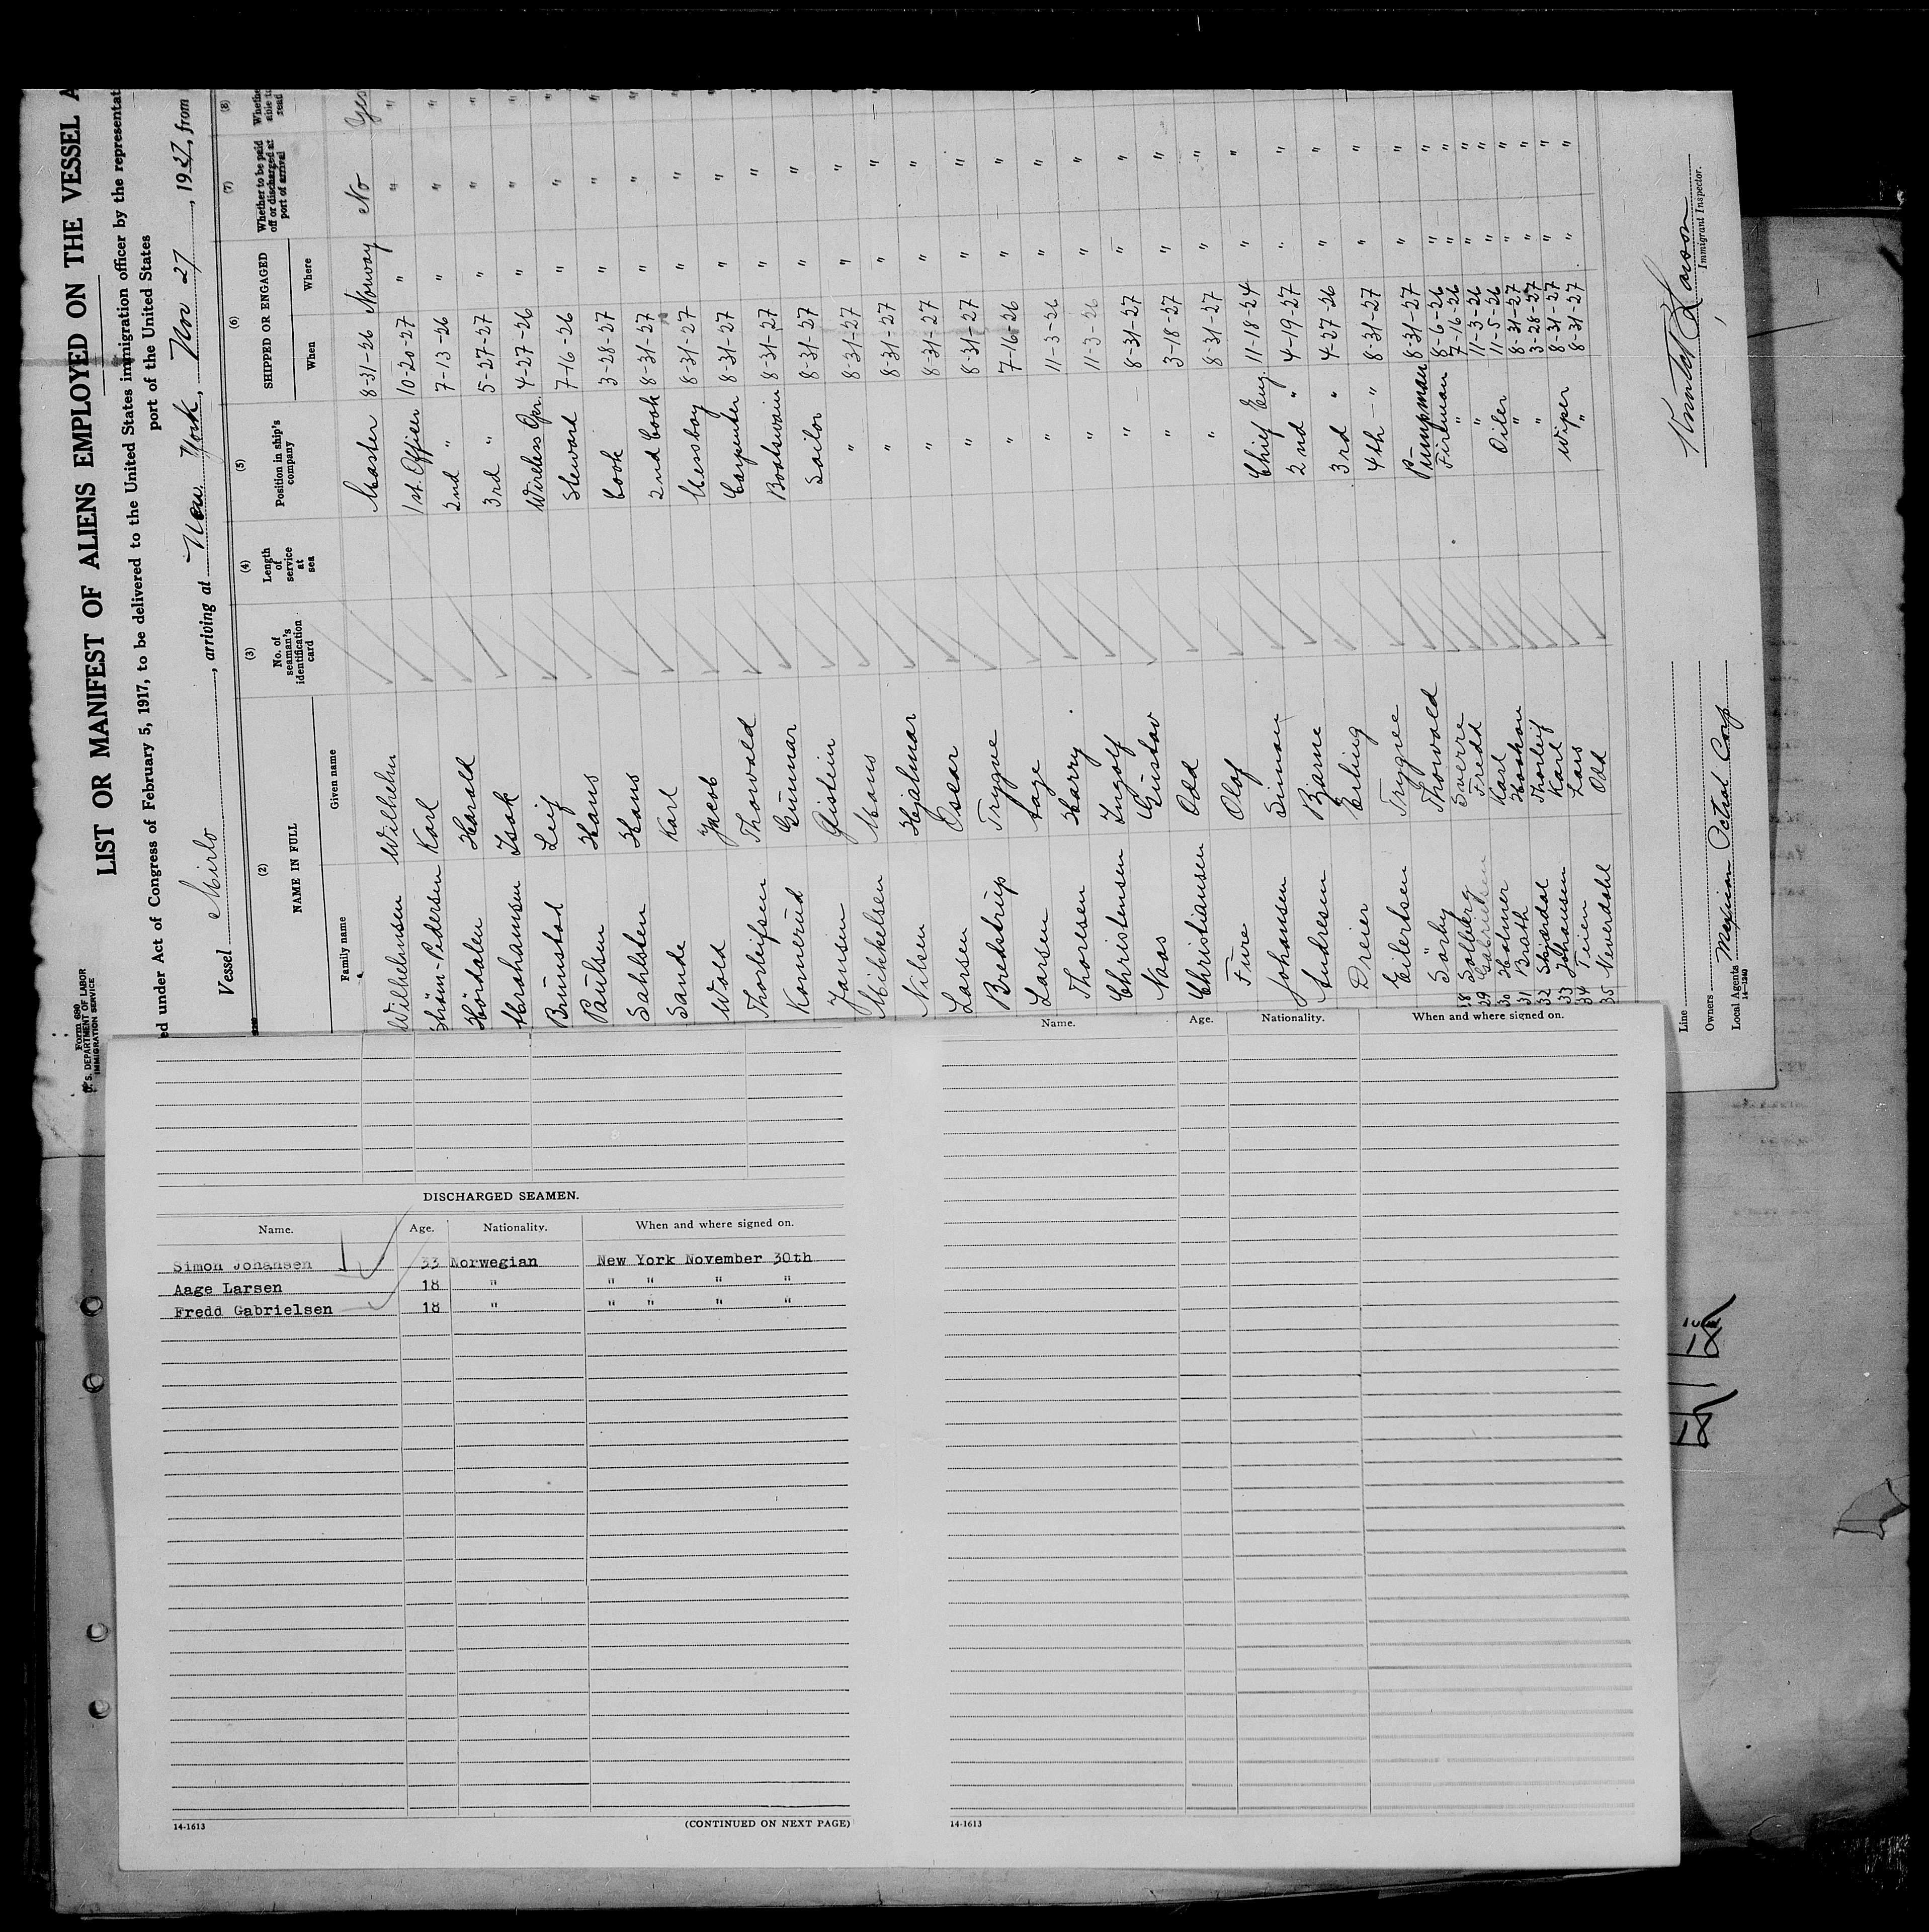 Form 680
U. S. DEPARTMENT OF LABOR
IMMIGRATION SERVICE
LIST OR MANIFEST OF ALIENS EMPLOYED ON THE VESSEL A
ed under Act of Congress of February 5, 1917, to be delivered to the United States immigration officer by the representat
port of the United States
Vessel Mirlo, arriving at New York, Nov 27, 1927, from
(2) (3) (4) (5) (6) (7) (8)
NAME IN FULL No. of seaman's identification card Length of service at sea Position in ship's company SHIPPED OR ENGAGED Whether to be paid off or discharged at port of arrival Whethe able to read
Family name Given name When Where
Wilhelmsen Wilhelm Master 8-31-26 Norway No Yes
Ström-Pedersen Karl 1st. Officer 10-20-27 " " "
Hördalen Harald 2nd " 7-13-26 " " "
Abrahamsen Isak 3rd " 5-27-27 " " "
Brunstad Leif Wireless Opr. 4-27-26 " " "
Paulsen Hans Steward 7-16-26 " " "
Sahlsten Hans Cook 3-28-27 " " "
Sande Karl 2nd Cook 8-31-27 " " "
Wold Jacob Messboy 8-31-27 " " "
Thorleifsen Thorvald Carpenter 8-31-27 " " "
Komnerud Gunnar Boatswain 8-31-27 " " "
Jansen Öistein Sailor 8-31-27 " " "
Mikkelsen Mons " 8-31-27 " " "
Nilsen Hjalmar " 8-31-27 " " "
Larsen Oscar " 8-31-27 " "
Bredstrup Trygve " 8-31-27 " "
Larsen Aage " 7-16-26 " "
Thorlsen Harry " 11-3-26 " "
Christensen Ingolf " 11-3-26 " "
Naas Gustav " 8-31-27 " "
Christiansen Odd " 3-18-27 " "
Fure Olaf " 8-31-27 " "
Johansen Simon Chief Eng. 11-18-24 " "
Andresen Barne 2nd " 4-19-27 " "
Dreier Erling 3rd " 4-27-26 " "
Eilertsen Trygve 4th " 8-31-27 " "
Sörby Thorvald Pumpman 8-31-27 " "
28 Solberg Sverre Fireman 8-6-26 " "
29 Gabrielsen Fredd " 7-16-26 " "
30 Holmer Karl " 11-3-26 " "
31 Brath Haakon Oiler 11-5-26 " "
32 Skjærdal Thorleif " 8-31-27 " "
33 Johansen Karl " 3-28-27 " "
34 Teien Lars Wiper 8-31-27 " "
35 Neverdahl Odd " 8-31-27 " "
Line
Owners
Local Agents Mexican Petrol Corp
14-1240
Larson
Immigrant Inspector.
DISCHARGED SEAMEN.
Name. Age. Nationality. When and where signed on.
Simon Johansen 33 Norwegian New York November 30th
Aage Larsen 18 " " " " "
Fredd Gabrielsen 18 " " " " "
14-1613 (CONTINUED ON NEXT PAGE)
Name. Age. Nationality. When and where signed on.
14-1613